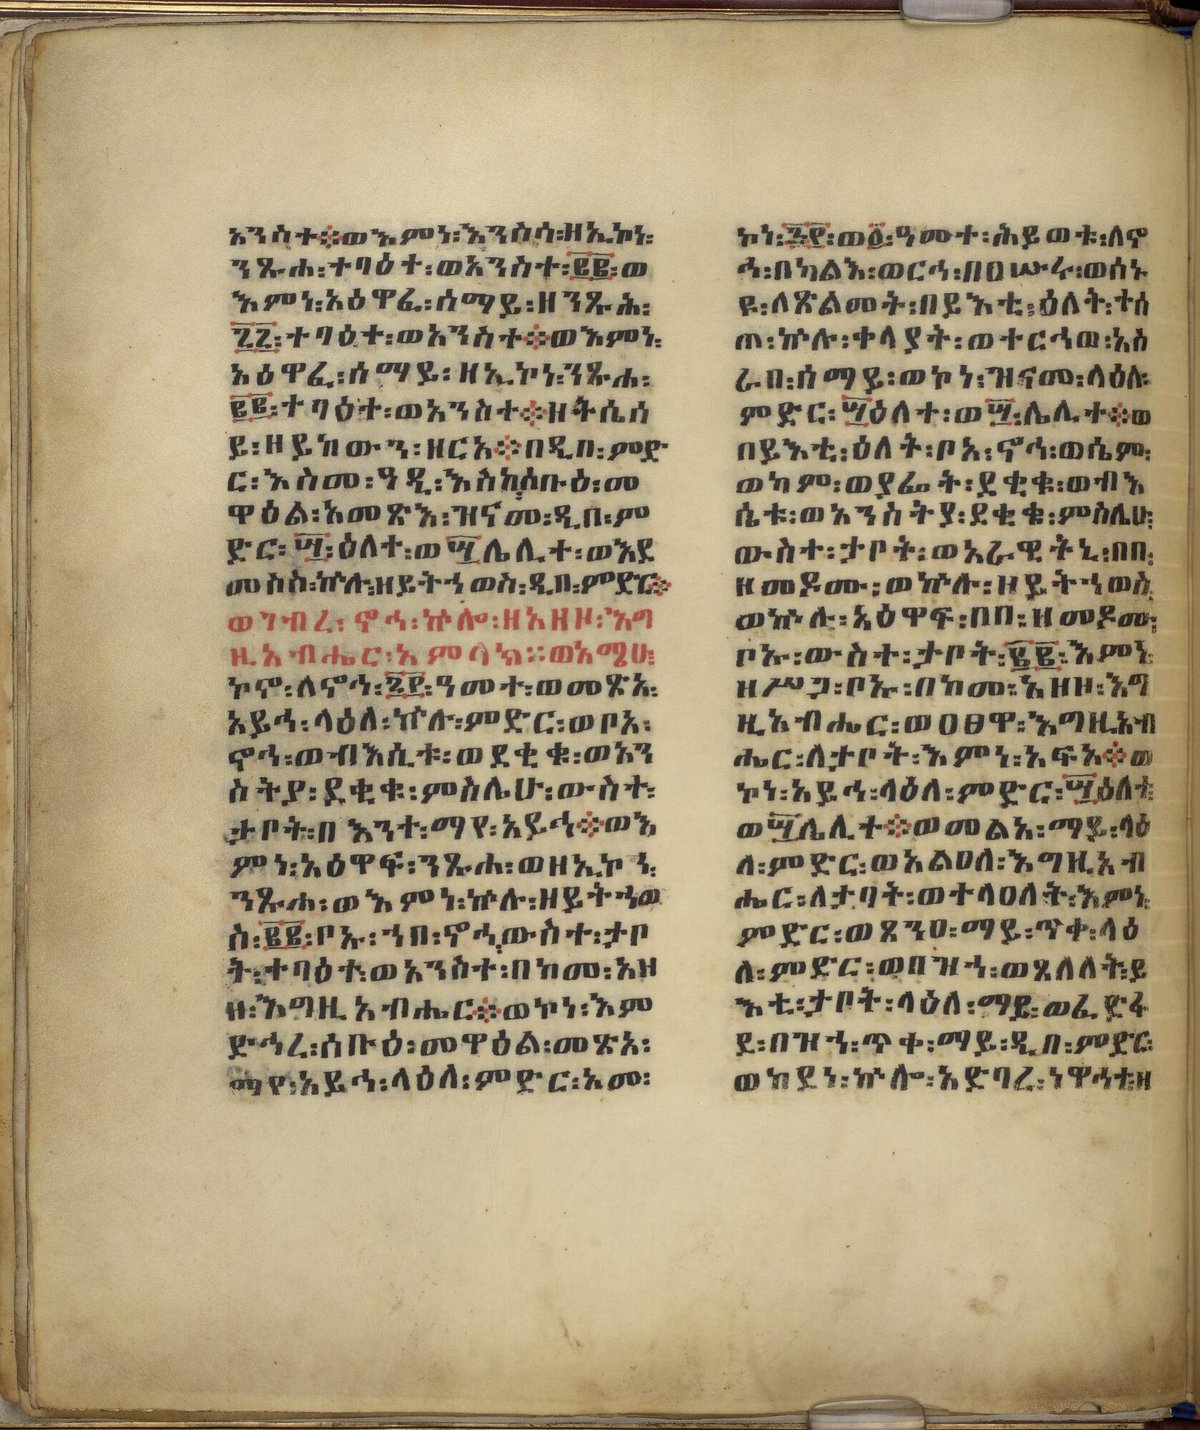 አንስተ፨ወእምነ፡እንስሳ፡ዘኢኮነ፡
ንጹሐ፡ተባዕተ፡ወአንስተ፡፪፪፡ወ
እምነ፡አዕዋፈ፡ሰማይ፡ዘንጹሕ፡
፯፯፡ተባዕተ፡ወአንስተ፨ወእምነ፡
አዕዋፈ፡ሰማይ፡ዘኢኮነ፡ንጹሐ፡
፪፪፡ተባዕተ፡ወአንስተ፨ዘትሴሰ
ይ፡ዘይከውን፡ዘርአ፨በዲበ፡ምድ
ር፡እስመ፡ዓዲ፡እስከ፡ሰቡዕ፡መ
ዋዕል፡አመጽእ፡ዝናመ፡ዲበ፡ም
ድር፡፵፡ዕለተ፡ወ፵ሌሊተ፡ወእደ
መስስ፡ኵሉ፡ዘይትኀወስ፡ዲበ፡ምድር፨
ወገብረ፡ኖኅ፡ኵሎ፡ዘአዘዞ፡እግ
ዚአብሔር፡አምላክ፡፡ወአሜሁ፡
ኮኖ፡ለኖኅ፡፮፻፡ዓመተ፡ወመጽአ፡
አይኅ፡ላዕለ፡ኵሉ፡ምድር፡ወቦአ፡
ኖኅ፡ወብእሲቱ፡ወደቂቁ፡ወአን
ስትያ፡ደቂቁ፡ምስሌሁ፡ውስተ፡
ታቦት፡በእንተ፡ማየ፡አይኅ፨ወእ
ምነ፡አዕዋፍ፡ንጹሐ፡ወዘኢኮነ፡
ንጹሐ፡ወእምነ፡ኵሉ፡ዘይትኀወ
ስ፡፪፪፡ቦኡ፡ኀበ፡ኖኅ፡ውስተ፡ታቦ
ት፡ተባዕተ፡ወአንስተ፡በከመ፡አዘ
ዘ፡እግዚአብሔር፨ወኮነ፡እም
ድኅረ፡ሰቡዕ፡መዋዕል፡መጽአ፡
ማየ፡አይኅ፡ላዕለ፡ምድር፡አመ፡
ኮነ፡፮፻፡ወ፩፡ዓመተ፡ሕይወቱ፡ለኖ
ኅ፡በካልእ፡ወርኅ፡በዐሡሩ፡ወሰኑ
ዩ፡ለጽልመት፡በይእቲ፡ዕለት፡ተሰ
ጠ፡ኵሉ፡ቀላያት፡ወተርኅወ፡አስ
ራበ፡ሰማይ፡ወኮነ፡ዝናመ፡ላዕለ፡
ምድር፡፵ዕለተ፡ወ፵፡ሌሊተ፨ወ
በይእቲ፡ዕለት፡ቦአ፡ኖኅ፡ወሴም፡
ወካም፡ወያፌት፡ደቂቁ፡ወብእ
ሴቱ፡ወአንስትያ፡ደቂቁ፡ምስሌሁ፡
ውስተ፡ታቦት፡ወአራዊትኒ፡በበ፡
ዘመዶሙ፡ወኵሉ፡ዘይትኀወስ፡
ወኵሉ፡አዕዋፍ፡በበ፡ዘመዶሙ፡
ቦኡ፡ውስተ፡ታቦት፡፪፪፡እምነ፡
ዘሥጋ፡ቦኡ፡በከመ፡አዘዞ፡እግ
ዚአብሔር፡ወዐፀዋ፡እግዚአብ
ሔር፡ለታቦት፡እምነ፡አፍአ፨ወ
ኮነ፡አይኅ፡ላዕለ፡ምድር፡፵ዕለተ፡
ወ፵ሌሊተ፨ወመልአ፡ማይ፡ላዕ
ለ፡ምድር፡ወአልዐለ፡እግዚአብ
ሔር፡ለታባት፡ወተላዐለት፡እምነ፡
ምድር፡ወጸንዐ፡ማይ፡ጥቀ፡ላዕ
ለ፡ምድር፡ወበዝኀ፡ወጸለለት፡ይ
እቲ፡ታቦት፡ላዕለ፡ማይ፡ወፈድፋ
ደ፡በዝኀ፡ጥቀ፡ማይ፡ዲበ፡ምድር፡
ወከደነ፡ኵሎ፡አድባረ፡ነዋኅተ፡ዘ